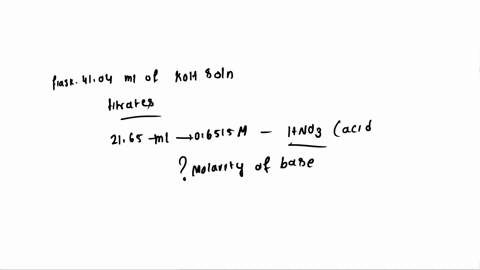 flask. 41.04 ml of KOH soln
titrates
21.65 ml → 0.6515 M - HNO3 (acid
? Molarity of base